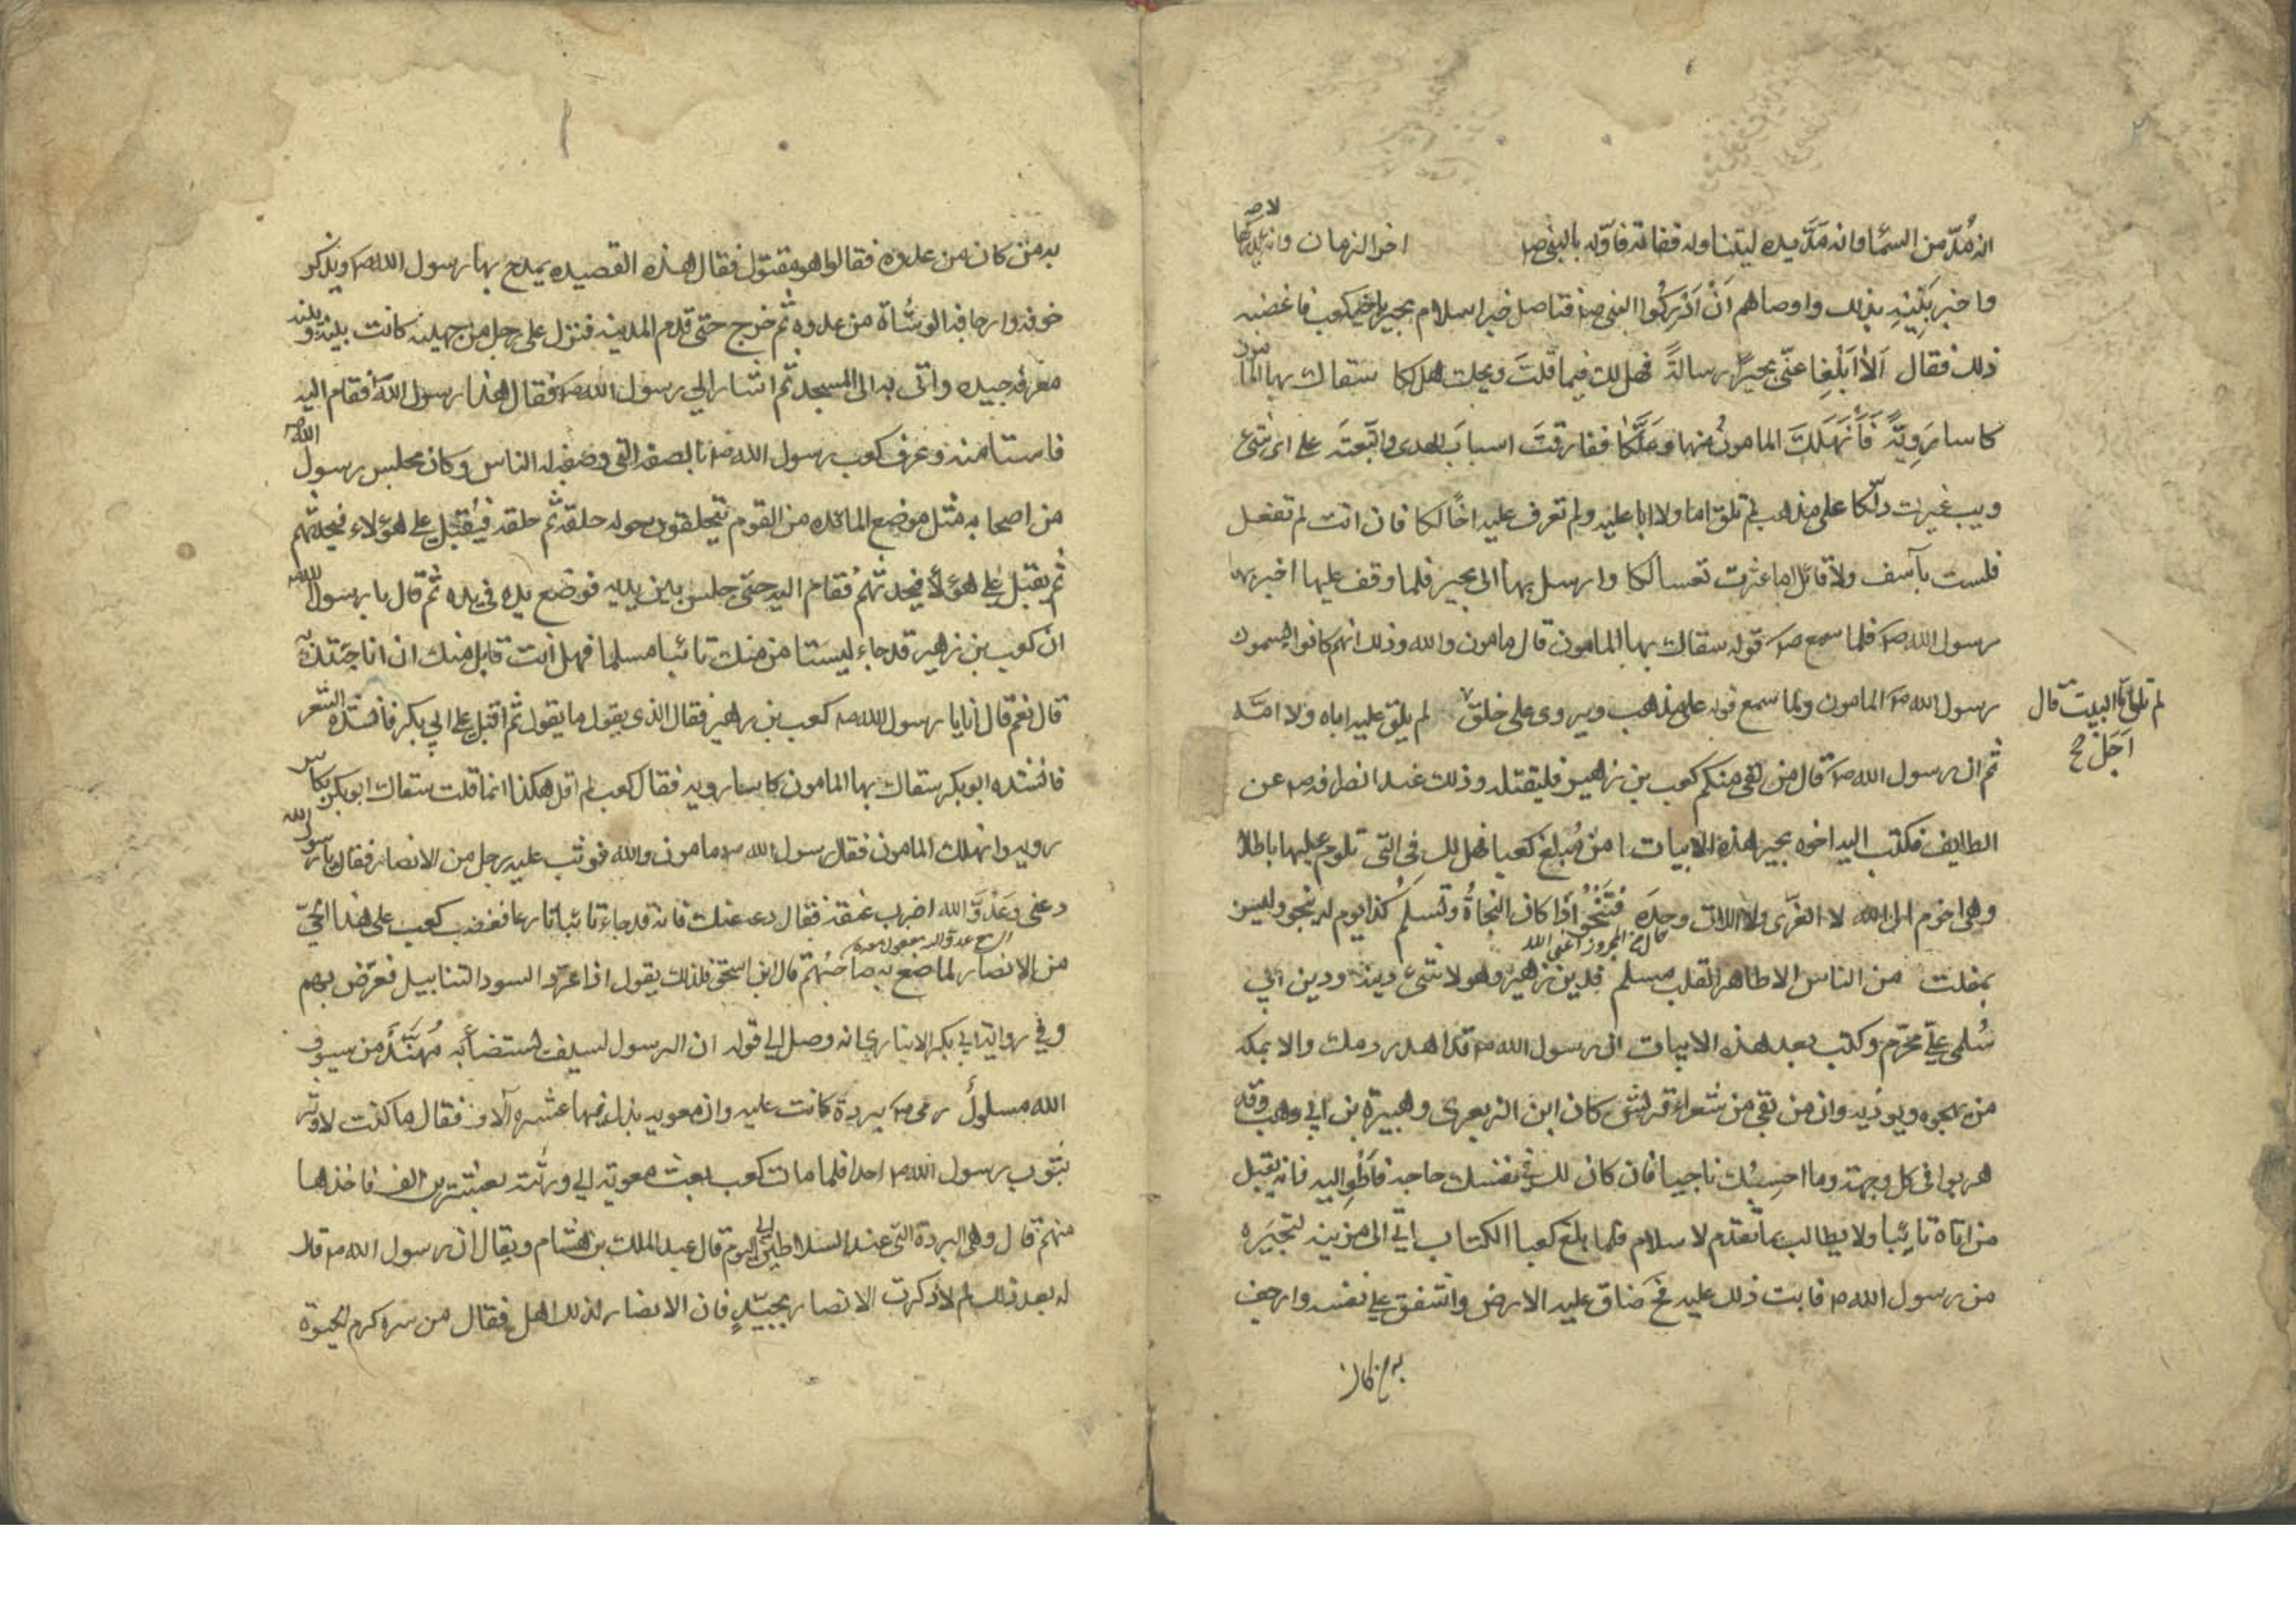 انه مُدّ من السماء وانه مَدَّ يده ليتناوله ففاته فاوّله بالنبى صم اخر الزمان وانه لا يدركها
واخبر بَنِيْهِ بذلك واوصاهم اَنْ اَدْرَكُوا النبى صم فتاصل خبر اسلام بجير باخيه كعب فاغضبه
ذلك فقال اَلاٰ اَبْلِغا عنّى بجيرًا رسالةً فهل لك فيما قلتَ ويحك هل لكا سقاك بها المامون
كاسا رَوِيَّةً فَأَنْهَلَكَ المامونُ منها وعَلَّكٰا ففارقتَ اسبابَ الهدى واتّبعتَه على اى شئ
ويب غيرك دلّكا على مذهب لم تلق اما ولا ابا عليه ولم تعرف عليه اخًا لكا فان انت لم تفعل
فلست بآسف ولا قائل اما عثرت تعسا لكا وارسل بها الى بجير فلما وقف عليها اخبر بها
رسول الله صم فلما سمع صم قوله سقاك بها المامون قال مامون والله وذلك انهم كانوا يسمون
رسول الله صم المامون ولما سمع قوله على مذهب ويروى على خلق لم يلق عليه اباه ولا امّه
لم تلق البيت قال
اَجَلْ صح
ثم ان رسول الله صم قال من لقى منكم كعب بن زهير فليقتله وذلك عند انصرافه صم عن
الطايف فكتب اليه اخوه بجير هذه الابيات من مُبلغ كعبا فهل لك فى التى تلوم عليها باطلا
وهى احزم الى الله لا العُزّى ولا اللات وحدَه فَتَنْجُوْ اذا كان النجاةُ وتسلم كذا يوم لا ينجو وليس
بمفلت من الناس الا طاهر القلب مسلم فدين زهير وهو لا شئ دينه ودين ابى
سُلمى علىّ محرّم وكتب بعد هذه الابيات ان رسول الله صم قد اهدر دمك والا بمكه
من يهجوه ويوذيه وان من بقى من شعراء قريش كان ابن الزبعرى وهبيرة بن ابى وهب وقد
هربوا فى كل وجهة وما احسِبُك ناجيا فان كان لك فى نفسك حاجة فاَطْوِ اليه فانه يقبل
من اتاه تائبا ولا يطالب بما تقدم الاسلام فلما بلغ كعبا الكتاب اتى الى مزينة لتجيَره
من رسول الله صم فابت ذلك عليه فح ضاق عليه الارض واشفق على نفسه وارجف
به من كان
به من كان من عدوه فقالوا هو مقتول فقال هذه القصيده يمدح بها رسول الله صم ويذكر
خوفه وارجاف الوشاة من عدوه ثم خرج حتى قدم المدينه فنزل على رجل من جهينه كانت بينه وبينه
معرفه جيده واتى به الى المسجد ثم اشار الى رسول الله صم فقال هذا رسول الله فقام اليه
فاستامنه وعرف كعب رسول الله صم بالصفه التى وصف له الناس وكان مجلس رسول الله صم
من اصحابه مثل موضع المائده من القوم يتحلقون حوله حلقة ثم حلقه فيُقبل على هؤلاء فيحدثهم
ثم يقبل على هؤلا فيحدثهم فقام اليه حتى جلس بين يديه فوضع يده فى يده ثم قال يا رسول الله
ان كعب بن زهير قد جاء ليستامن منك تائبا مسلما فهل انت قابل منه ان انا جئتك به
قال نعم قال انا يا رسول الله صم كعب بن زهير فقال الذى يقول ما يقول ثم اقبل على ابى بكر فانشده الشعر
فانشده ابو بكر سقاك بها المامون كاسا رويه فقال كعب لم اقل هكذا انما قلت سقاك ابو بكر بكاس
رويه وانهلك المامون فقال رسول الله صم مامون والله فوثب عليه رجل من الانصار فقال يا رسول الله
دعنى وعَدُوَّ الله اضرب عنقه فقال دعه عنك فانه قد جاء تائبا نازعا فغضب كعب على هذا الحىّ
من الانصار لما صنع به صاحبُهم قال ابن اسحق فلذلك يقول اذا عرّد السود التنابيل فعرّض بهم
وفى رواية ابى بكر الانبارى انه وصل الى قوله ان الرسول لسيف يستضأ به مُهَنَّدٌ من سيوف
الله مسلولُ رمى صم ببردة كانت عليه وان معويه بذل فيها عشره آلاف فقال ما كنت لاوثر
بثوب رسول الله صم احدا فلما مات كعب بعث معوية الى ورثته بعشرين الف فاخذها
منهم قال وهى البردة التى عند السلاطين الى اليوم قال عبد الملك بن هشام ويقال ان رسول الله صم قال
له بعد ذلك لم لا ذكرت الانصار بخير فان الانصار لذلك اهل فقال من سره كرم الحيوة